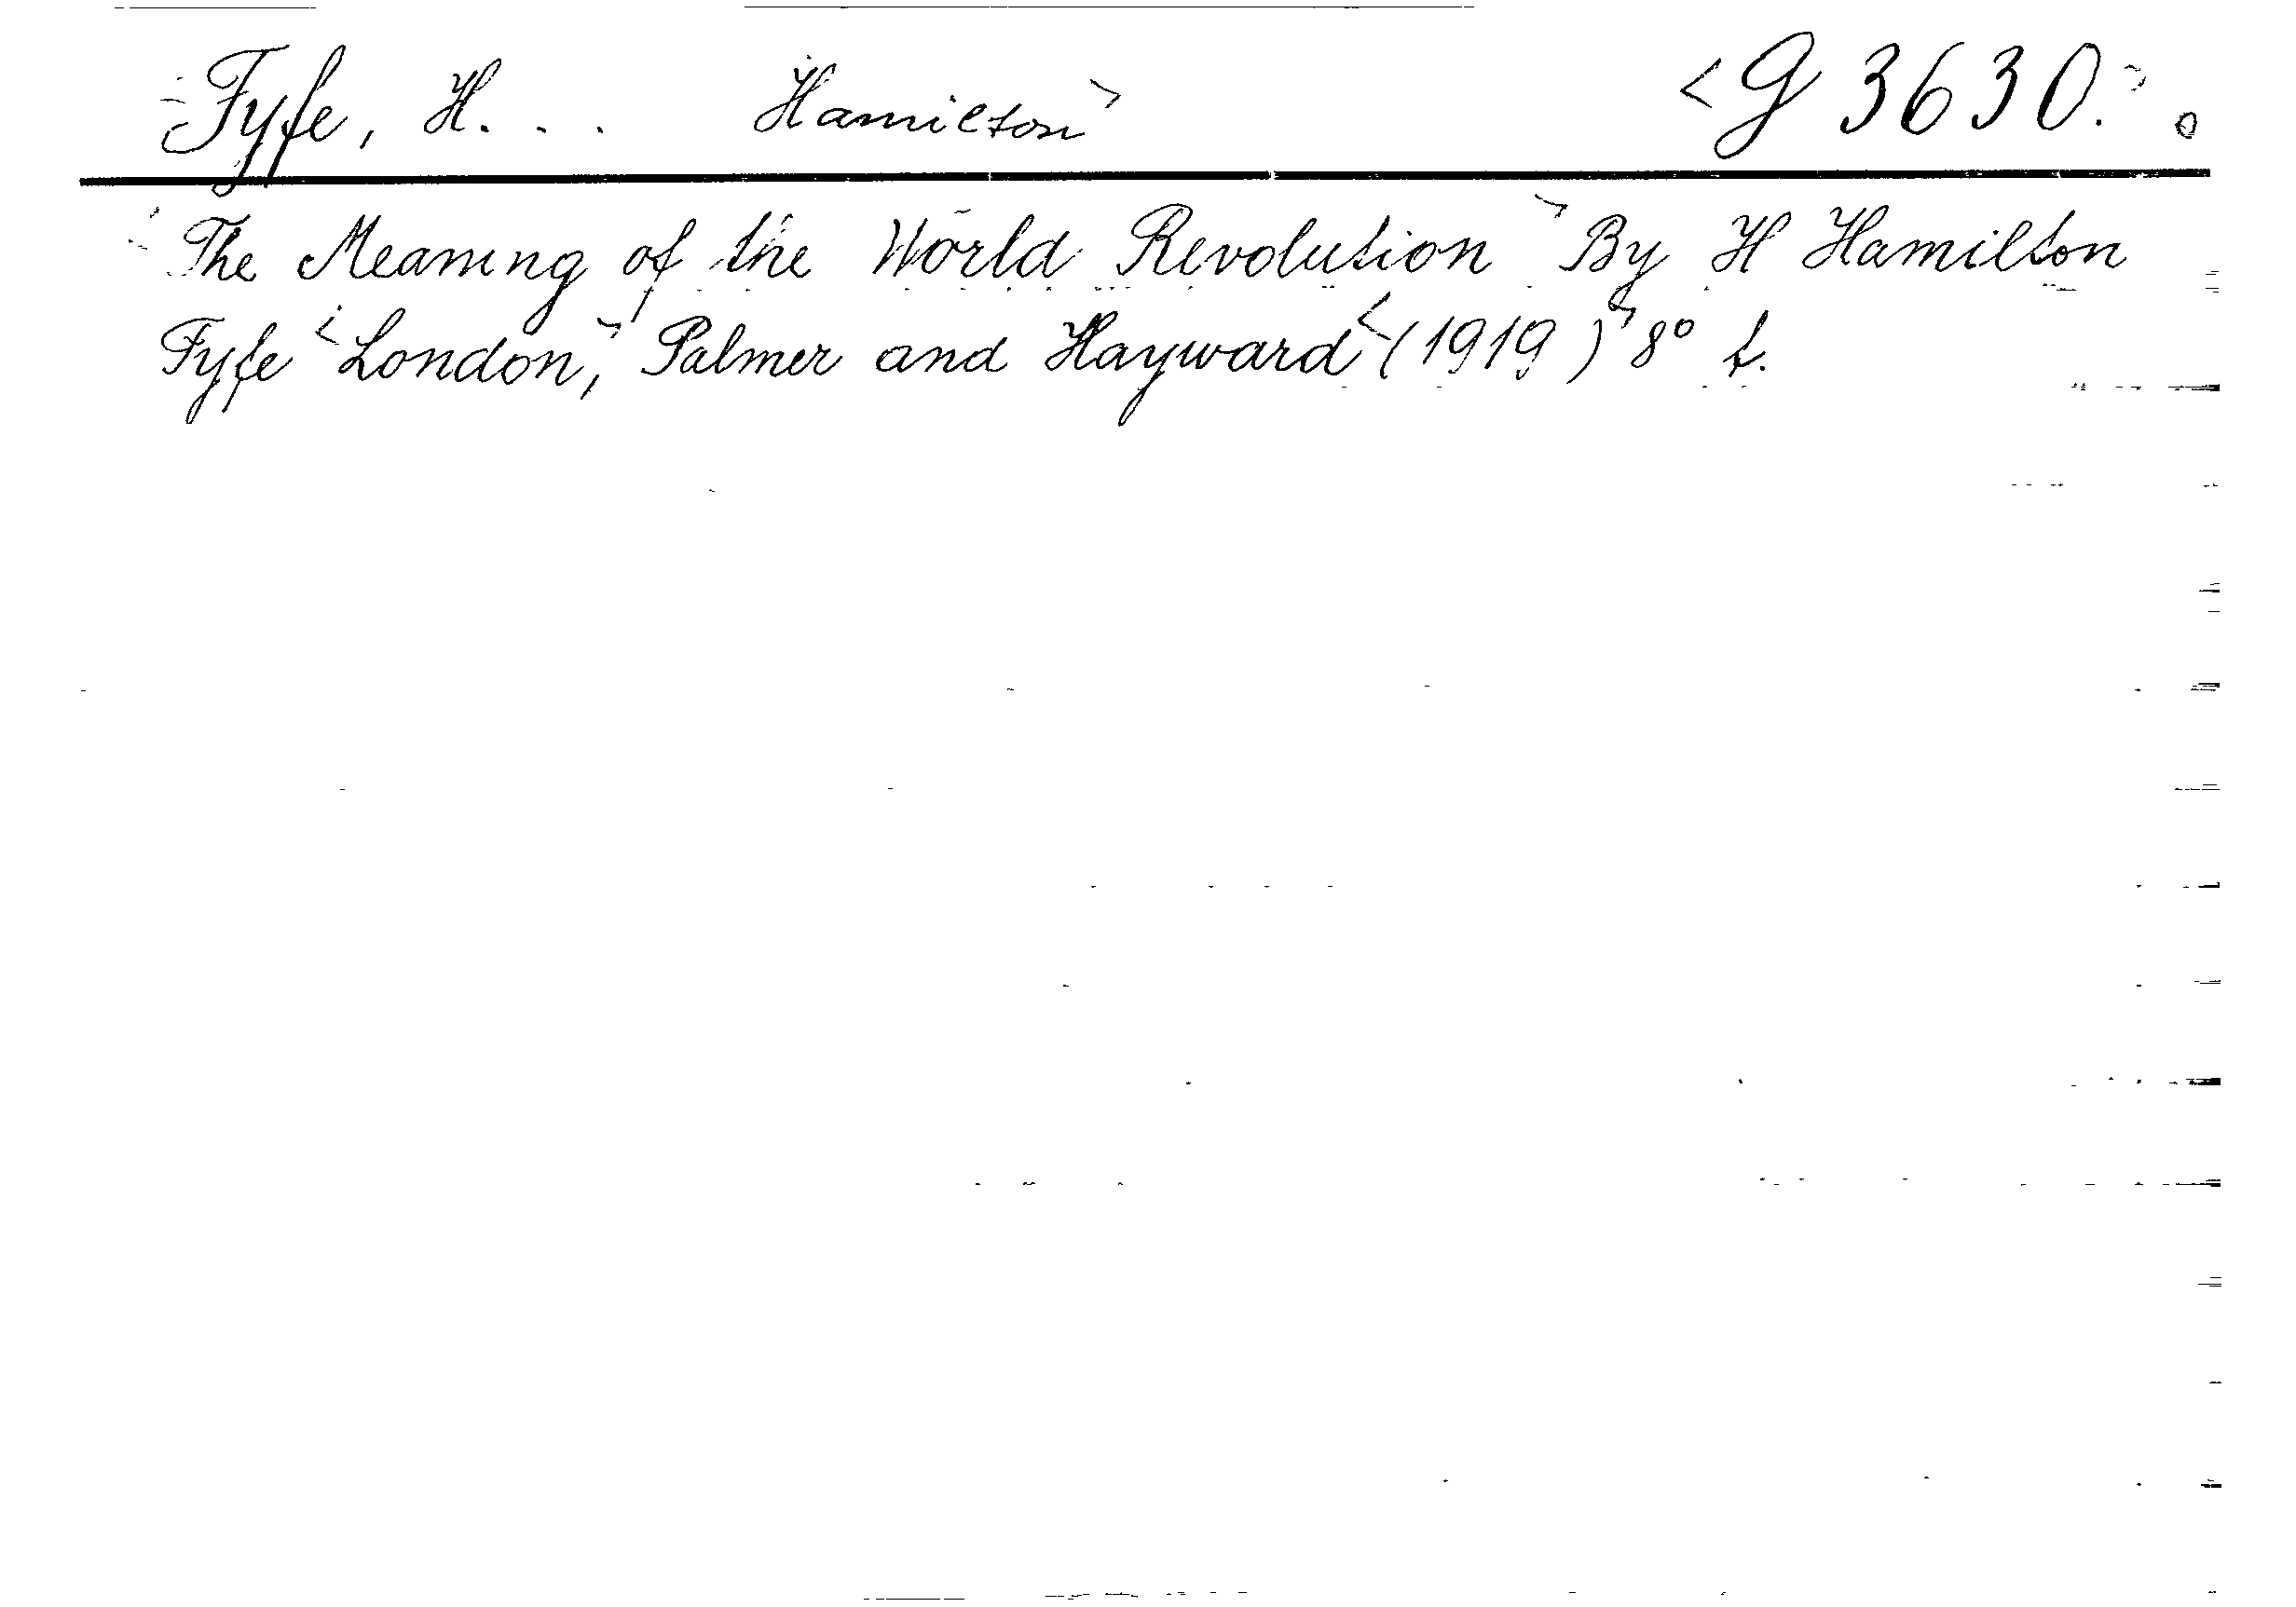 Fyfe, H. . . Hamilton> <G 3630.> o
<The Meaning of the World Revolution> By H Hamilton
Fyfe <London,> Palmer and Hayward <(1919)> 8° f.